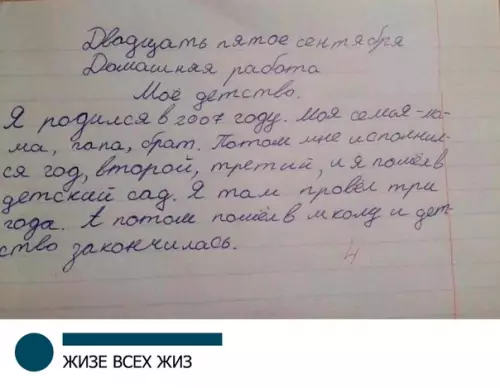 Двадцать пятое сентября
Домашняя работа
Моё детство.
Я родился в 2007 году. Моя семья-ма-
ма, папа, брат. Потом мне исполнил-
ся год, второй, третий, и я пошёл в
детский сад. Я там провёл три
года. А потом пошёл в школу и дет-
ство закончилась.
4
ЖИЗЕ ВСЕХ ЖИЗ